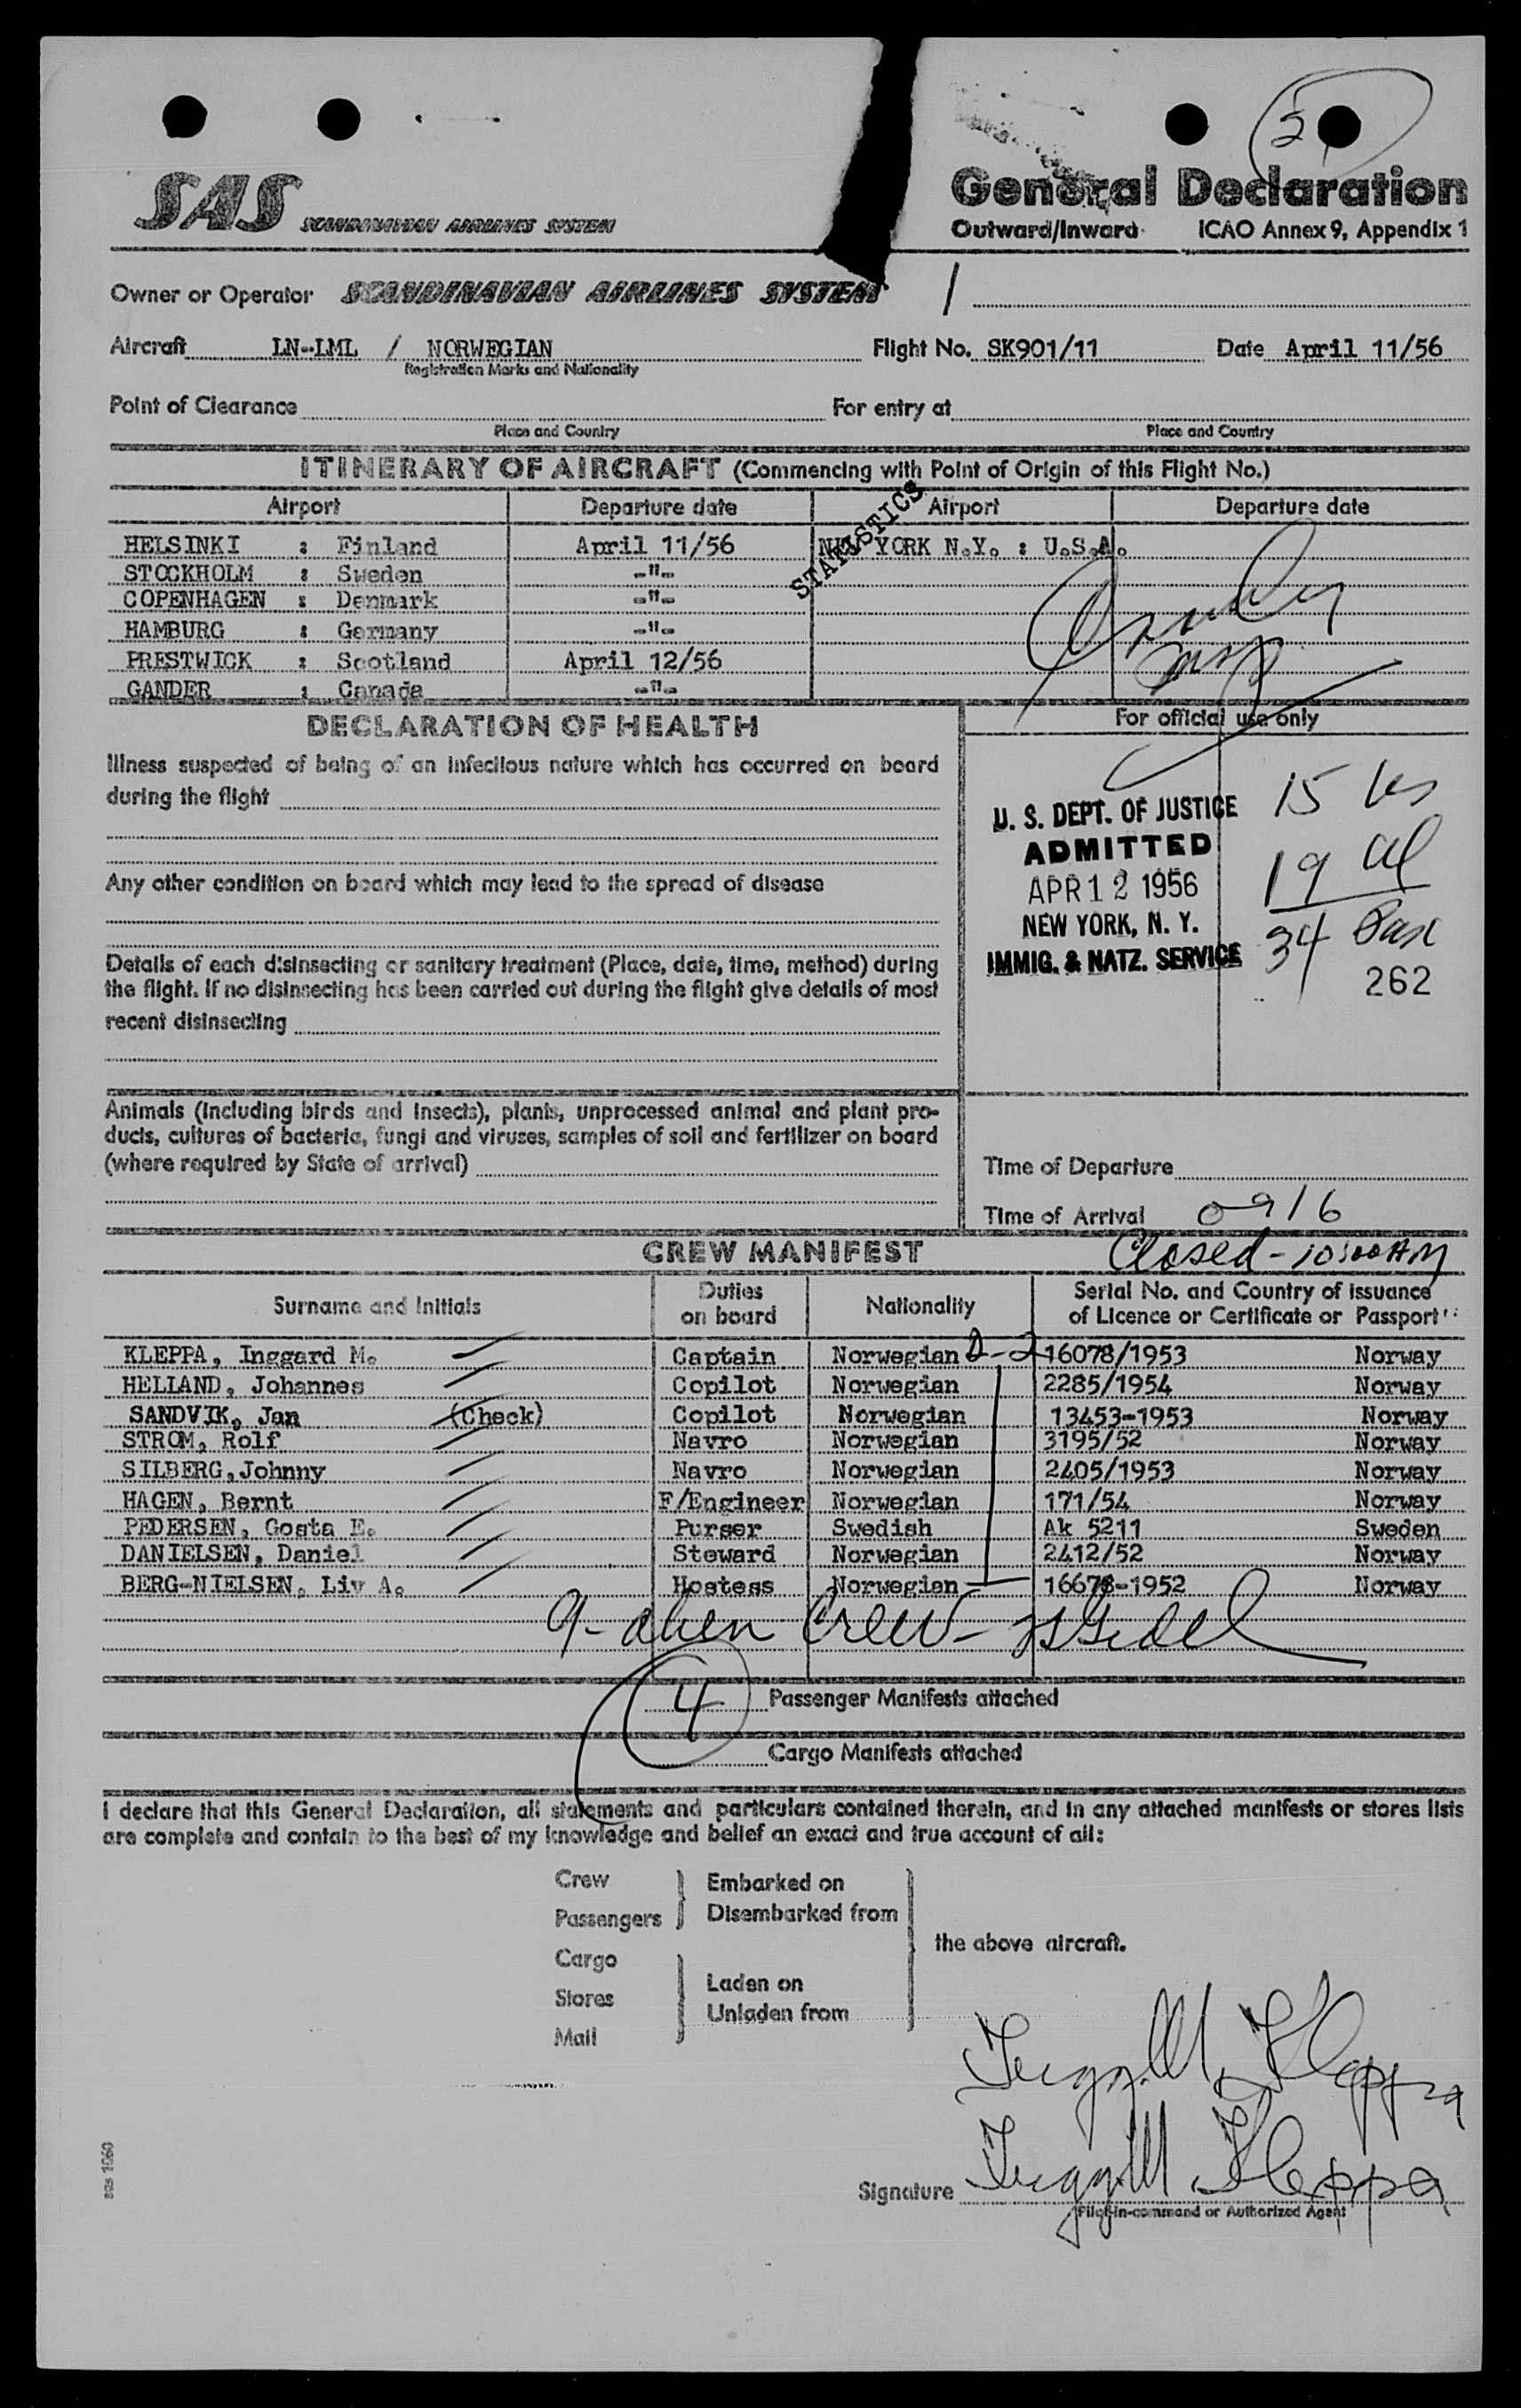 SAS SCANDINAVIAN AIRLINES SYSTEM
General Declaration
Outward/Inward ICAO Annex 9, Appendix 1
Owner or Operator SCANDINAVIAN AIRLINES SYSTEM
Aircraft LN-LML / NORWEGIAN Flight No. SK901/11 Date April 11/56
Registration Marks and Nationality
Point of Clearance For entry at
Place and Country Place and Country
ITINERARY OF AIRCRAFT (Commencing with Point of Origin of this Flight No.)
Airport Departure date Airport Departure date
STATISTICS
HELSINKI : Finland April 11/56 NEW YORK N.Y. : U.S.A.
STOCKHOLM : Sweden -"-
COPENHAGEN : Denmark -"-
HAMBURG : Germany -"-
PRESTWICK : Scotland April 12/56
GANDER : Canada -"-
DECLARATION OF HEALTH
Illness suspected of being of an infectious nature which has occurred on board
during the flight
Any other condition on board which may lead to the spread of disease
Details of each disinsecting or sanitary treatment (Place, date, time, method) during
the flight. If no disinsecting has been carried out during the flight give details of most
recent disinsecting
For official use only
U. S. DEPT. OF JUSTICE
ADMITTED
APR 12 1956
NEW YORK, N. Y.
IMMIG. & NATZ. SERVICE
15
19
34 Pax
262
Animals (including birds and insects), plants, unprocessed animal and plant pro-
ducts, cultures of bacteria, fungi and viruses, samples of soil and fertilizer on board
(where required by State of arrival)
Time of Departure
Time of Arrival 0916
Closed - 10:00 AM
CREW MANIFEST
Surname and Initials Duties on board Nationality Serial No. and Country of issuance of Licence or Certificate or Passport
KLEPPA, Inggard M. Captain Norwegian D-2 16078/1953 Norway
HELLAND, Johannes Copilot Norwegian 2285/1954 Norway
SANDVIK, Jan (Check) Copilot Norwegian 13453-1953 Norway
STROM, Rolf Navro Norwegian 3195/52 Norway
SILBERG, Johnny Navro Norwegian 2405/1953 Norway
HAGEN, Bernt F/Engineer Norwegian 171/54 Norway
PEDERSEN, Gosta E. Purser Swedish Ak 5211 Sweden
DANIELSEN, Daniel Steward Norwegian 2412/52 Norway
BERG-NIELSEN, Liv A. Hostess Norwegian 16678-1952 Norway
9 - alien Crew -
4 Passenger Manifests attached
Cargo Manifests attached
I declare that this General Declaration, all statements and particulars contained therein, and in any attached manifests or stores lists
are complete and contain to the best of my knowledge and belief an exact and true account of all:
Crew
Passengers
Embarked on
Disembarked from
Cargo
Stores
Mail
Laden on
Unladen from
the above aircraft.
Ingg. M. Kleppa
Signature Ingg M Kleppa
Pilot-in-command or Authorized Agent
sas 1060